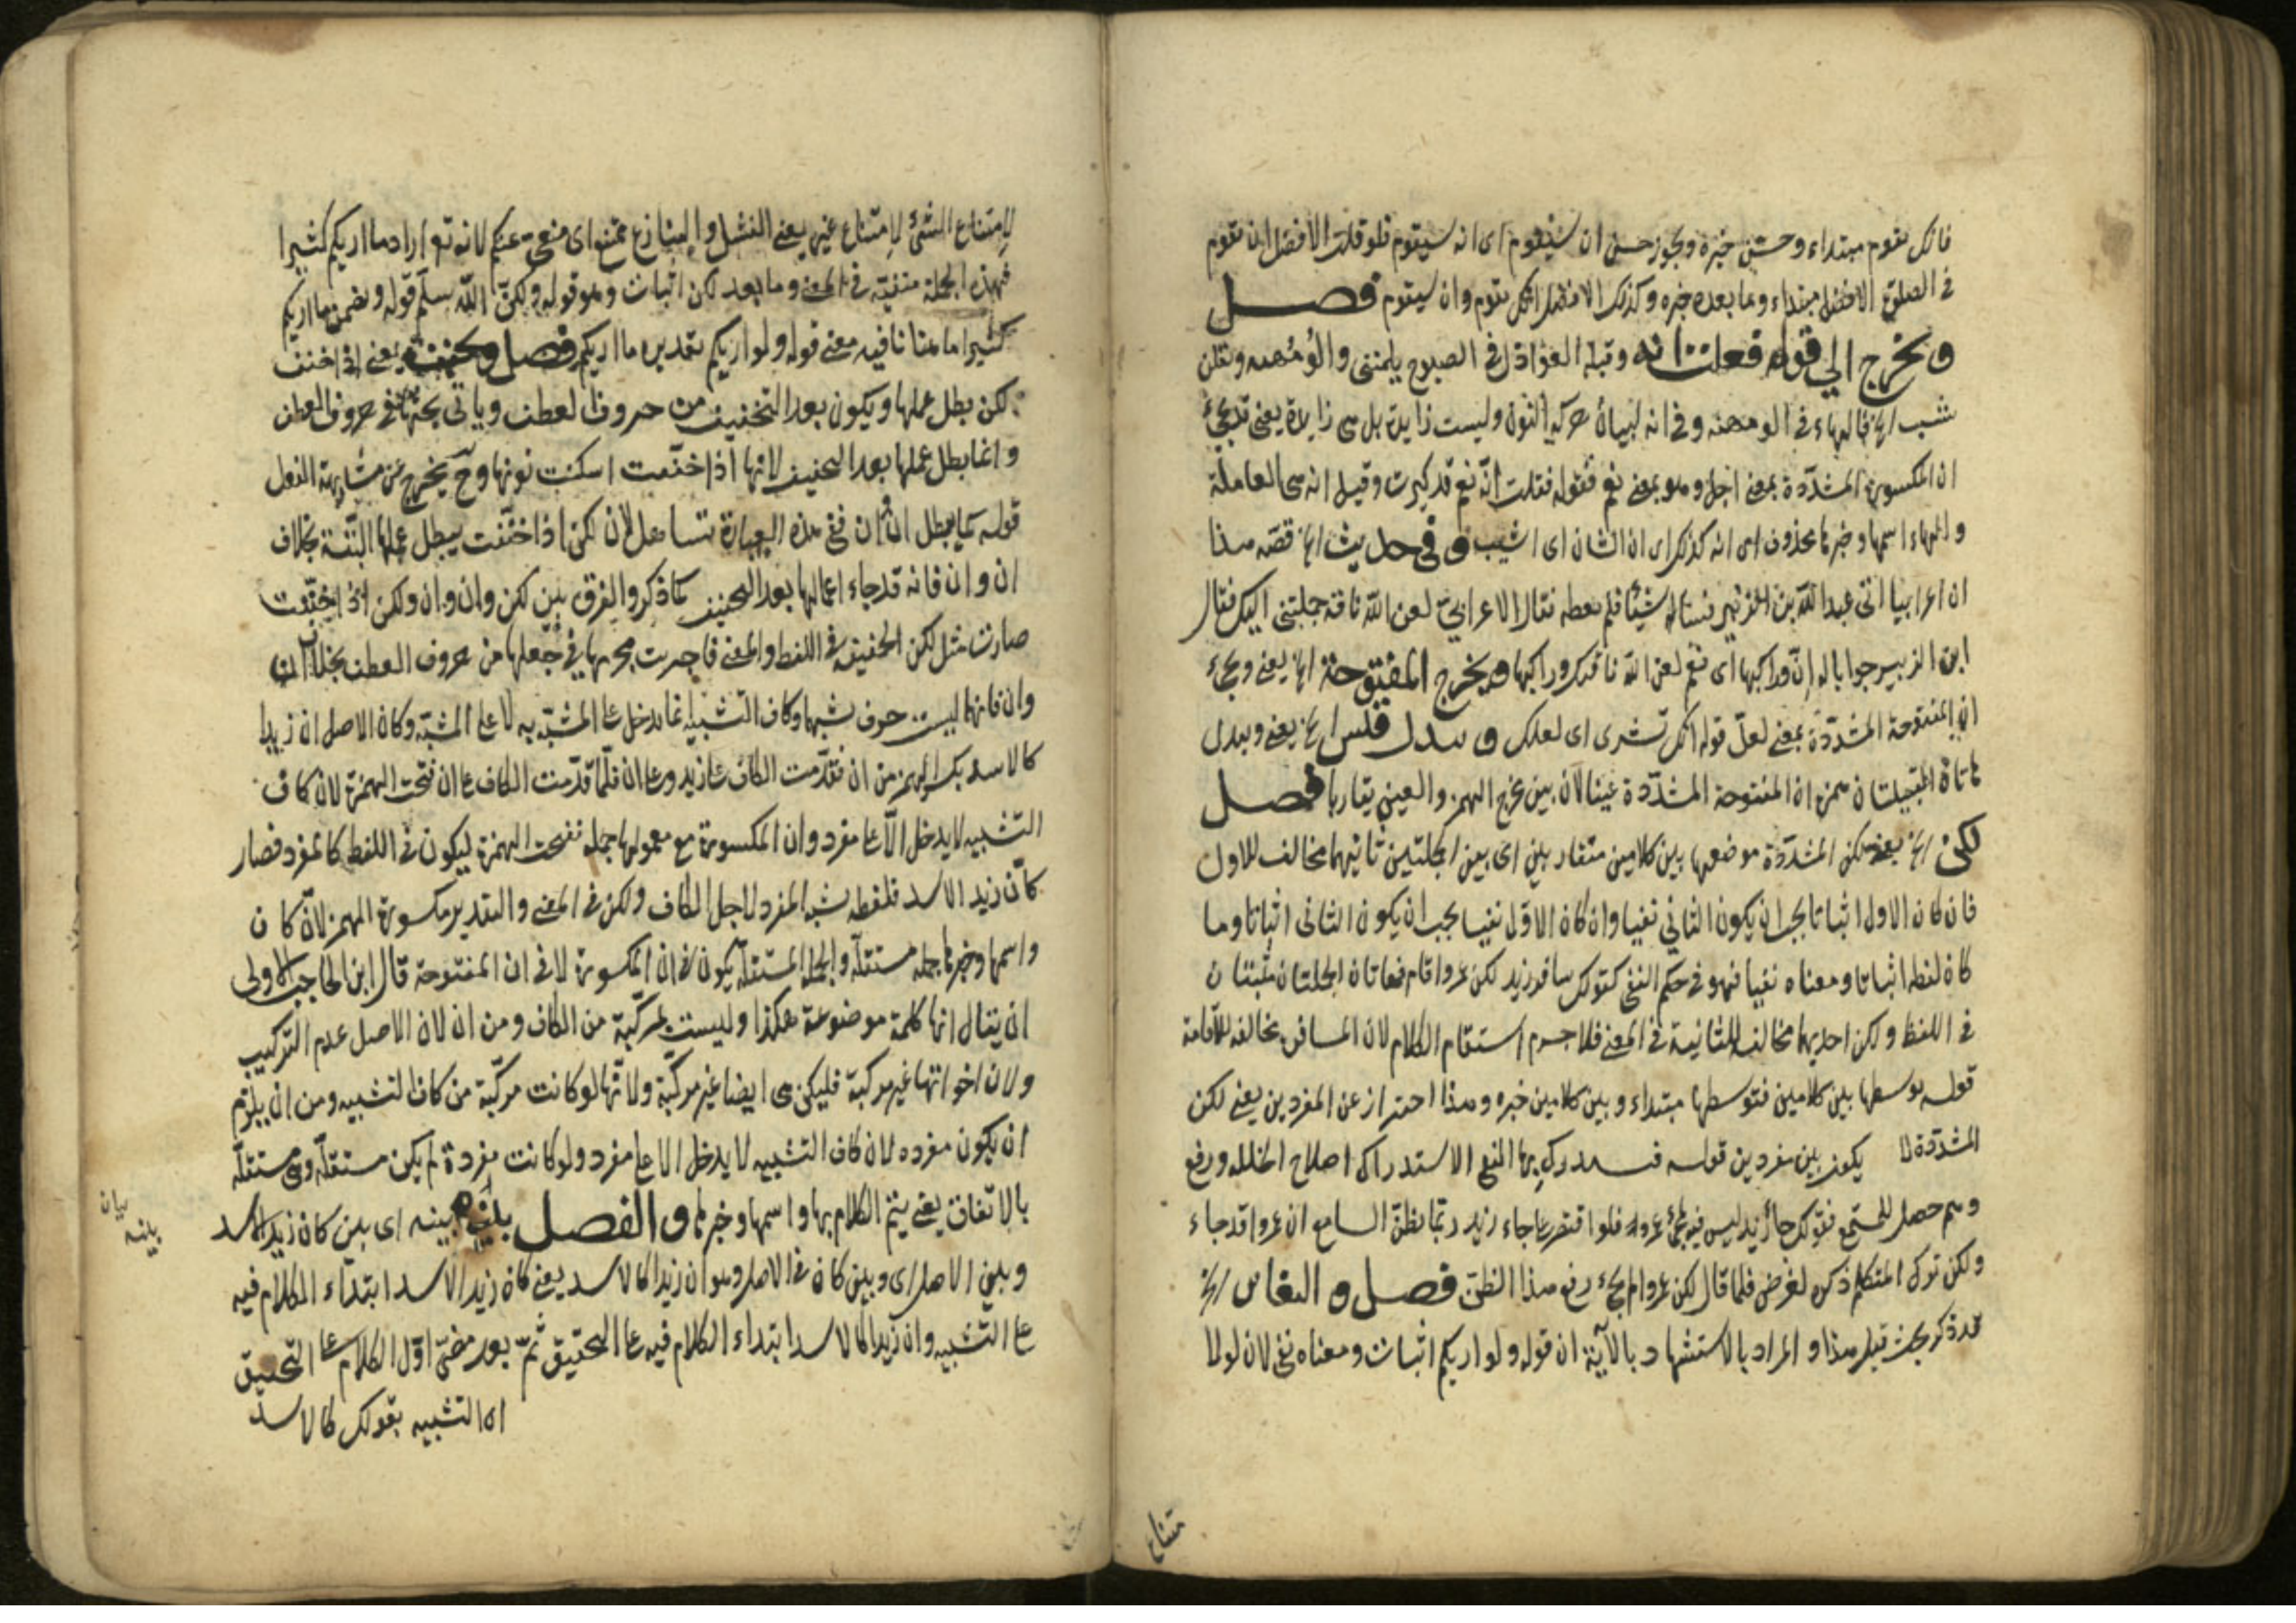 فانك تقوم مبتداء وحسن خبره ويجوز حسن ان ستقوم اى انه سيقوم فلو قلت الافضل ان تقوم
فى الصلوة الافضل مبتداء وما بعده خبره وكذلك الافضل انك تقوم وان سيقوم فصل
ويخرج الى قوله فقلت انه وقبله العواذل فى الصبوح يلمننى والومهنه ويقلن
شيب الخ فالهاء فى الومهنه وفى انه لبيان حركة النون وليست زايدة بل هى زايدة يعنى قد يجئ
ان المكسورة المشددة بمعنى اجل وهو بمعنى نعم فقوله فقلت انه نعم قد كبرت وقيل انه هى العاملة
والهاء اسمها وخبرها محذوف اى انه كذكراى ان الشان اى اشيب وفى حديث الخ قصه هذا
ان اعرابيا اتى عبد الله بن الزبير فساله شيئا فلم يعطه فقال الاعرابى لعن الله ناقة حملتنى اليك فقال
ابن الزبير جوابا له ان وراكبها اى نعم لعن الله ناقتك وراكبها ويخرج المفتوحة الخ يعنى ويجئ
ان المفتوحة المشددة بمعنى لعل قوله انك تشترى اى لعلك وتبدل قيس الخ يعنى ويبدل
هاتان القبيلتان همزة ان المفتوحة المشددة عينا لان بين مخرج الهمز والعين تقاربا فصل
لكن الخ يعنى لكن المشددة موضعها بين كلامين متقاربين اى بين الجملتين ثانيهما مخالف للاول
فان كان الاول اثباتا يجب ان يكون الثانى نفيا وان كان الاول نفيا يجب ان يكون الثانى اثباتا وما
كان لفظه اثباتا ومعناه نفيا فهو فى حكم النفى كقولك سافر زيد لكن عمروا قام فهاتان الجملتان مثبتتان
فى اللفظ ولكن احديهما مخالف للثانية فى المعنى فلا جرم استقام الكلام لان المسافر مخالفة للاقامة
قوله توسطها بين كلامين فتوسطها مبتداء وبين كلامين خبره وهذا احتراز عن المفردين يعنى لكن
المشددة لا يكون بين مفردين قوله فيستدرك بها النفى الاستدراك اصلاح الخلل ورفع
وهم حصل للمستمع فقولك جاء زيد ليس فيه مجئ عمرو فلو اقتصر على جاء زيد ربما يظن السامع ان عمروا قد جاء
ولكن ترك المتكلم ذكره لغرض فلما قال لكن عمروا لم يجئ رفع هذا الظن فصل والتغاير الخ
قد ذكر بحث قبل هذا والمراد بالاستشهاد بالآية ان قوله ولو اريكم اثبات ومعناه نفى لان لو لما
متناع
لامتناع الشئ لامتناع غيره يعنى الفشل والتنازع ممتنع اى منفى عنكم لانه تع اراد ما اريكم كثيرا
فهذه الجملة منفية فى المعنى وما بعد لكن اثبات وهو قوله ولكن الله سلم قوله وتضمن ما اريكم
كثيرا ما هنا نافيه معنى قوله ولو اريكم تقديره ما اريكم فصل وتخفف يعنى اذا خفف
لكن بطل عملها ويكون بعد التخفيف من حروف العطف وياتى بحثها فى حروف العطف
وانما بطل عملها بعد التخفيف لانها اذا خففت اسكنت نونها وح يخرج عن مشابهة الفعل
قوله كما يبطل ان وان ففى هذه العبارة تساهل لان لكن اذا خففت يبطل عملها البتة بخلاف
ان وان فانه قد جاء اعمالها بعد التخفيف كما ذكر والفرق بين لكن وان وان ولكن اذا خففت
صارت مثل لكن الخفيفة فى اللفظ والمعنى فاجريت مجريها فى جعلها من حروف العطف بخلاف ان
وان فانها ليست حرف شبهها وكاف التشبيه انما يدخل على المشبه به لا على المشبه وكان الاصل ان زيدا
كالاسد بكسر الهمز من ان فقدمت الكاف على زيد وعلى ان فلما قدمت الكاف على ان فتحت الهمزة لان كاف
التشبيه لا يدخل الا على مفرد وان المكسورة مع معمولها جملة ففتحت الهمزة ليكون فى اللفظ كالمفرد فصار
كان زيد الاسد فلفظه شبه المفرد لاجل الكاف ولكن فى المعنى والتقدير مكسورة الهمز لان كان
واسمها وخبرها جملة مستقلة والجملة المستقلة يكون فى ان المكسورة لا فى ان المفتوحة قال ابن الحاجب الاولى
ان يقال انها كلمة موضوعة هكذا وليست بمركبة من الكاف ومن ان لان الاصل عدم التركيب
ولان اخواتها غير مركبة فليكن هى ايضا غير مركبة ولانها لو كانت مركبة من كاف التشبيه ومن ان يلزم
ان يكون مفرده لان كاف التشبيه لا يدخل الا على مفرد ولو كانت مفردة لم يكن مستقلة وهى مستقلة
بالاتفاق يعنى يتم الكلام بها واسمها وخبرها والفصل بينه اى بين كان زيد الاسد
وبين الاصل اى وبين كان فى الاصل وهو ان زيدا كالاسد يعنى كان زيد الاسد ابتداء الكلام فيه
على التشبيه وان زيدا كالاسد ابتداء الكلام فيه على التحقيق ثم بعد مضى اول الكلام على التحقيق
التشبيه بقولك كالاسد
بيان
بينه